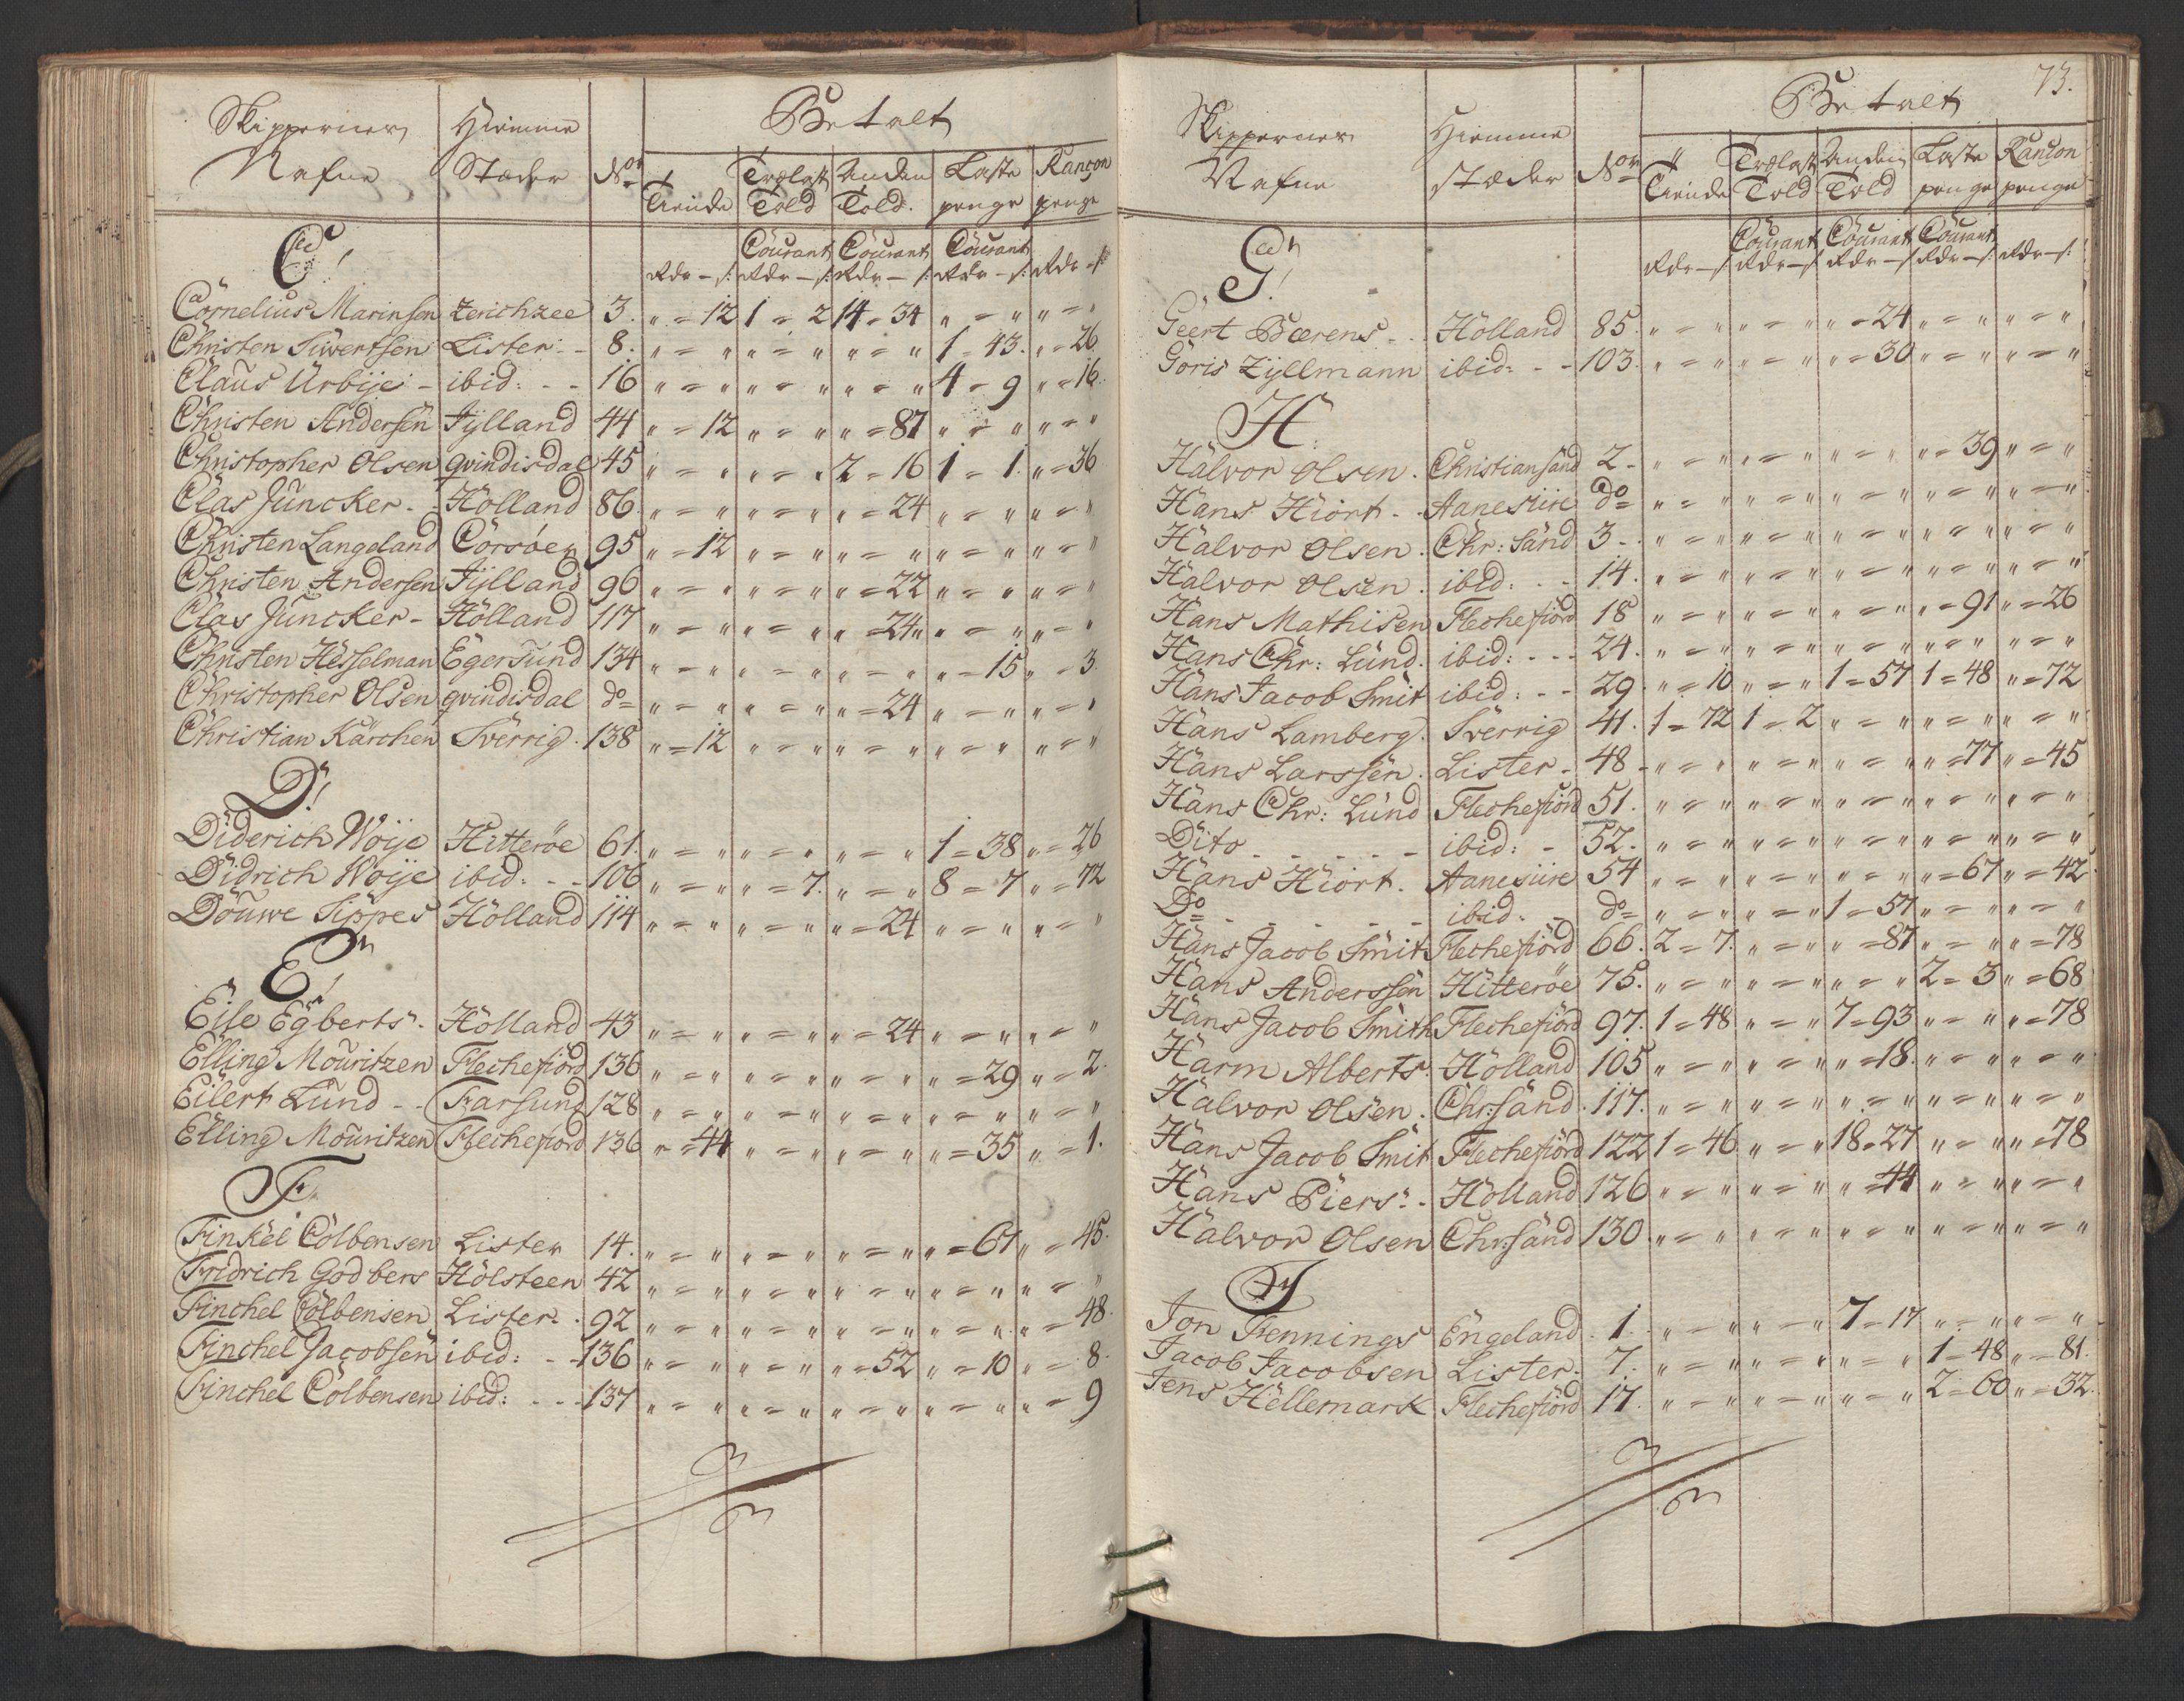 Skippernes Hiemme Betalt
Nafne Stæder No Tiende Trælast Told Anden Told. Laste penge Rançon penge
C! Courant Courant Courant
Rdr - s: Rdr - s: Rdr - s: Rdr - s: Rdr - s
Cornelius Marinsen Zerichzee 3. " = 12 1 = 2 14 = 34 " = " " = "
Christen Siwertsen Lister - 8. " = " " = " " = " 1 = 43. " = 26
Claus Urbije - ibid: - - 16 " = " " = " " = " 4 = 9 " = 16.
Christen Andersen Jylland 44 " = 12 " = " " = 87 " = " " = "
Christopher Olsen qvindisdal 45 " = " " = " 2 = 16 1 = 1. " = 36
Clas Juncker - Holland 86 " = " " = " " = 24 " = " " = "
Christen Langeland Corsöer 95 " = 12 " = " " = " " = " " = "
Christen Andersen Jylland 96 " = " " = " " = 22 " = " " = "
Clas Juncker - Holland 117 " = " " = " " = 24 " = " " = "
Christen Hesselman Egersund 134 " = " " = " " = " " = 15 " = 3.
Christopher Olsen qvindisdal do " = " " = " " = 24 " = " " = "
Christian Karchen Sverrig. 138 " = 12 " = " " = " " = " " = "
D!
Diderich Woije Hitteröe 61. " = " " = " " = " 1 = 38 " = 26
Didrich Woije ibid: - - 106 " = " " = 7. " = " 8 = 7 " = 72
Douwe Sippes Holland 114 " = " " = " " = 24 " = " " = "
E!
Eise Egberts. Holland 43 " = " " = " " = 24 " = " " = "
Elling Mouritzen Flechefiord 136 " = " " = " " = " " = 29 " = 2.
Eilert Lund - - Farsund 128 " = " " = " " = " " = " " = "
Elling Mouritzen Flechefiord 136 " = 44 " = " " = " " = 35 " = 1.
F.
Finkel Colbensen Lister 14. " = " " = " " = " " = 61 " = 45.
Fridrich Godbers Holsteen 42 " = " " = " " = " " = " " = "
Finchel Colbensen Lister. . 92 " = " " = " " = " " = " " = 48.
Finchel Jacobsen ibid: - - 136 " = " " = " " = 52 " = 10 " = 8.
Finchel Colbensen ibid: - - - 137 " = " " = " " = " " = " " = 9
73.
Skippernes Hiemme Betalt
Nafne stæder No Tiende Trælast Told Anden Told Laste penge Rancon penge
G! Courant Courant Courant
Rdr - s Rdr - s Rdr - s Rdr - s: Rdr - s:
Geert Bærens - . Holland 85. " = " " = " " = 24 " = " " = "
Goris Zyllmann ibid: - - 103. " = " " = " " = 30 " = " " = "
H.
Halvor Olsen. Christiansand 2 - " = " " = " " = " " = 39 " = "
Hans Hiort - . Aanesiire do " = " " = " " = " " = " " = "
Halvor Olsen. Chr: Sand 3 - " = " " = " " = " " = " " = "
Halvor Olsen. ibid: - - 14. " = " " = " " = " " = " " = "
Hans Mathisen Flechefiord 18 " = " " = " " = " " = 91 " = 26
Hans Chr: Lund. ibid: - - - 24. " = " " = " " = " " = " " = "
Hans Jacob Smit ibid: - - 29. " = 10 " = " 1 = 57 1 = 48 " = 72
Hans Lamberg. Sverrig 41. 1 = 72 1 = 2 " = " " = " " = "
Hans Larssen. Lister - 48 - " = " " = " " = " " = 77 " = 45
Hans Chr: Lund Flechefiord 51. " = " " = " " = " " = " " = "
Dito - - - - - ibid: - 52. " = " " = " " = " " = " " = "
Hans Hiort. Aanesiire 54 " = " " = " " = " " = 67 " = 42.
Do - - - - - ibid. - do " = " " = " 1 = 57 " = " " = "
Hans Jacob Smit Flechefiord 66. 2 = 7. " = " " = 87 " = " " = 78
Hans Anderssen Hitteröe 75. " = " " = " " = " 2 = 3 " = 68
Hans Jacob Smith Flechefiord 97. 1 = 48 " = " 7 = 93 " = " " = 78
Harm Alberts. Holland 105 " = " " = " " = 18. " = " " = "
Halvor Olsen. Chr:sand. 117. " = " " = " " = " " = " " = "
Hans Jacob Smit Flechefiord 122 1 = 46 " = " 18 = 27 " = " " = 78
Hans Piers. - Holland 126 " = " " = " " = 44 " = " " = "
Halvor Olsen Chr:sand 130. " = " " = " " = " " = " " = "
J
Jon Jennings Engeland. 1. " = " " = " 7 = 17 " = " " = "
Jacob Jacobsen Lister. 7. " = " " = " " = " 1 = 48 " = 81.
Jens Hellemark Flechefiord 17. " = " " = " " = " 2 = 60 " = 32.